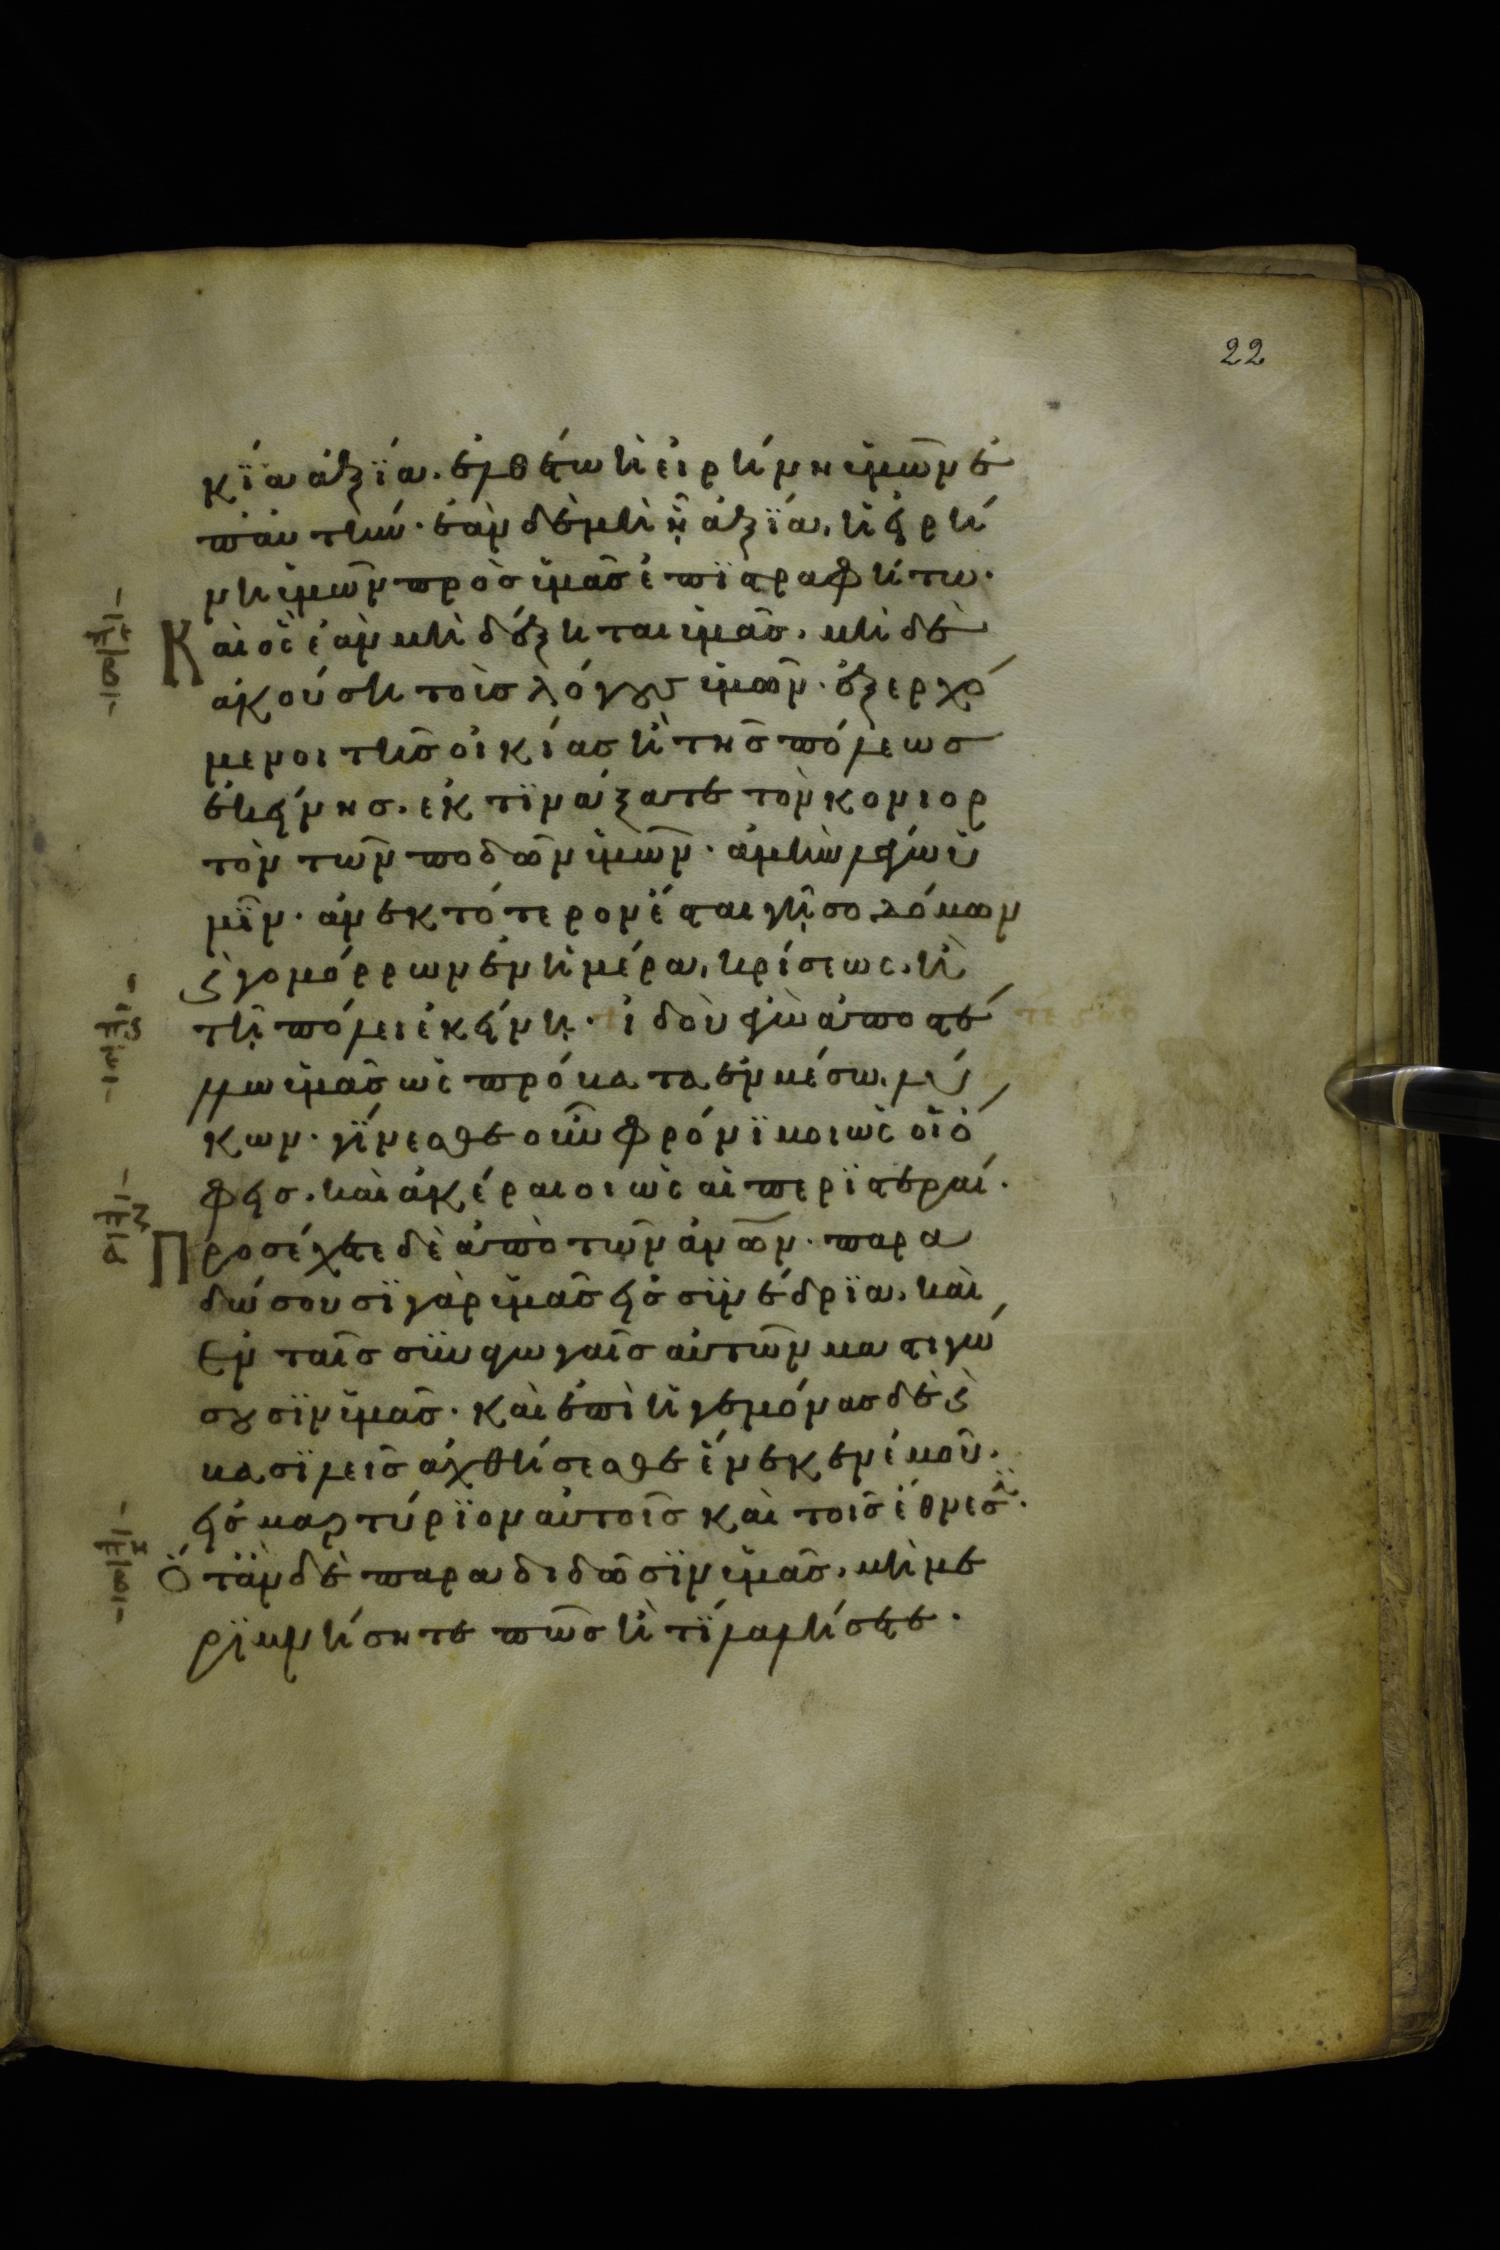 22
κϊα ἀξϊα. ἐλθέτω ἡ εἰρήνη ϋμῶν ἐ
π᾽ αυτήν· ἐὰν δὲ μὴ ῇ ἀξϊα, ἡ εἰρή
νη ϋμῶν πρὸσ ϋμᾶσ ἐπϊστραφήτω.
Καὶ ὃς ἐὰν μὴ δέξηται ϋμᾶσ. μὴ δὲ
ἀκούση τοὺσ λόγους ϋμῶν· ἐξερχό
μενοι τῆσ οἰκίασ ἢ τῆσ πόλεωσ
ἐκείνησ. ἐκτϊνάξατε τὸν κονιορ
τὸν τῶν ποδῶν ϋμῶν· ἀμὴν λέγω ϋ
μῖν. ἀνεκτότερον ἔσται γῆ σοδόμων
καὶ γομόρρων ἐν ἡμέρα κρίσεως. ἢ
τῆ πόλει ἐκείνη. ἰδοὺ ἐγὼ ἀποστέ
λλω ϋμᾶσ ὡς πρόβατα ἐν μέσω λύ
κων· γίνεσθε οὖν φρόνϊμοι ὡς οἱ ὄ
φεισ. καὶ ἀκέραιοι ὡς αἱ περϊστεραί.
Προσέχετε δὲ ἀπὸ τῶν ἀνῶν· παρα
δώσουσϊ γὰρ ϋμᾶσ εἰσ συνέδρϊα. καὶ
ἐν ταῖσ συναγωγαῖσ αὐτῶν μαστιγώ
σουσϊν ϋμᾶσ· καὶ ἐπὶ ἡγεμόνασ δὲ καὶ
βασϊλεῖσ ἀχθήσεσθε ἕνεκεν ἐμοῦ.
εἰσ μαρτύρϊον αὐτοῖσ καὶ τοῖσ ἔθνεσϊ.
Ὅταν δὲ παραδιδῶσϊν ϋμᾶσ. μὴ με
ρϊμνήσητε πῶσ ἢ τί λαλήσετε.